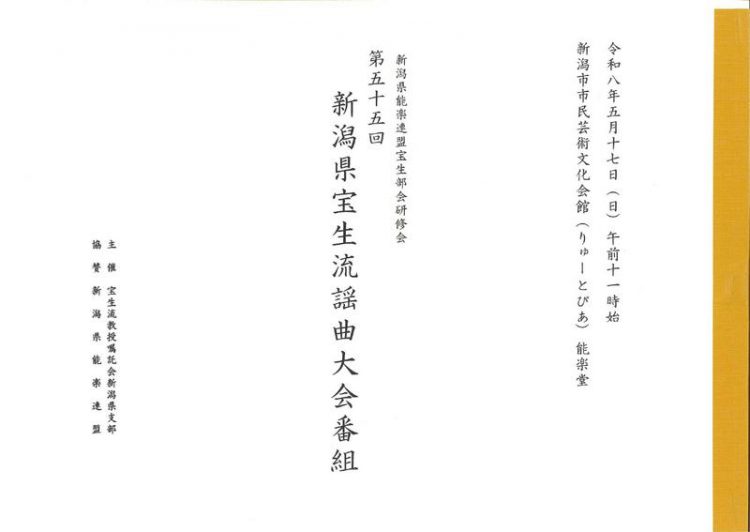 令和八年五月十七日（日）午前十一時始
新潟市市民芸術文化会館（りゅーとぴあ）能楽堂
新潟県能楽連盟宝生部会研修会
第五十五回
新潟県宝生流謡曲大会番組
主催 宝生流教授嘱託会新潟県支部
協賛 新潟県能楽連盟